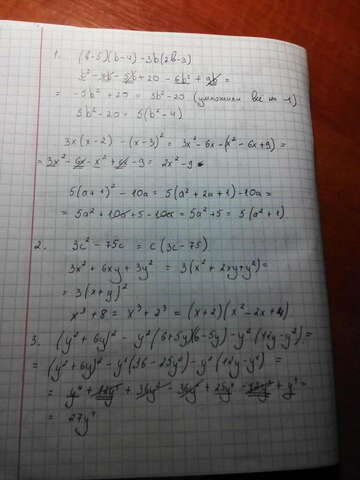 1. (b-5)(b-4)-3b(2b-3)
b² - 4b - 5b + 20 - 6b² + 9b =
= -5b² + 20 = 5b² - 20 (умножили все на -1)
5b² - 20 = 5(b² - 4)
3x(x-2) - (x-3)² = 3x² - 6x - (x² - 6x + 9) =
= 3x² - 6x - x² + 6x - 9 = 2x² - 9
5(a+1)² - 10a = 5(a² + 2a + 1) - 10a =
= 5a² + 10a + 5 - 10a = 5a² + 5 = 5(a² + 1)
2. 3c² - 75c = c(3c - 75)
3x² + 6xy + 3y² = 3(x² + 2xy + y²) =
= 3(x + y)²
x³ + 8 = x³ + 2³ = (x + 2)(x² - 2x + 4)
3. (y² + 6y)² - y²(6 + 5y)(6 - 5y) - y²(12y - y²) =
= (y² + 6y)² - y²(36 - 25y²) - y²(12y - y²) =
= y⁴ + 12y³ + 36y² - 36y² + 25y⁴ - 12y³ + y⁴ =
= 27y⁴